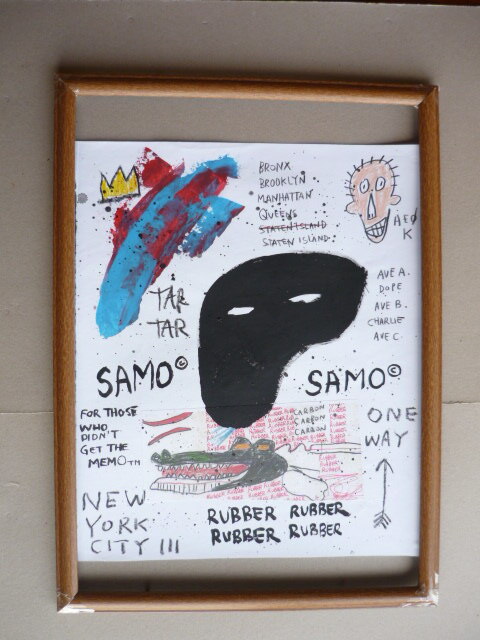 BRONX
BROOKLYN
MANHATTAN
QUEENS
STATEN ISLAND
STATEN ISLAND
TAR
TAR
AVE A.
DOPE
AVE B.
CHARLIE
AVE C.
SAMO©
SAMO©
FOR THOSE
WHO
DIDN'T
GET THE
MEMO
CARBON
CARBON
CARBON
ONE
WAY
NEW
YORK
CITY III
RUBBER RUBBER
RUBBER RUBBER